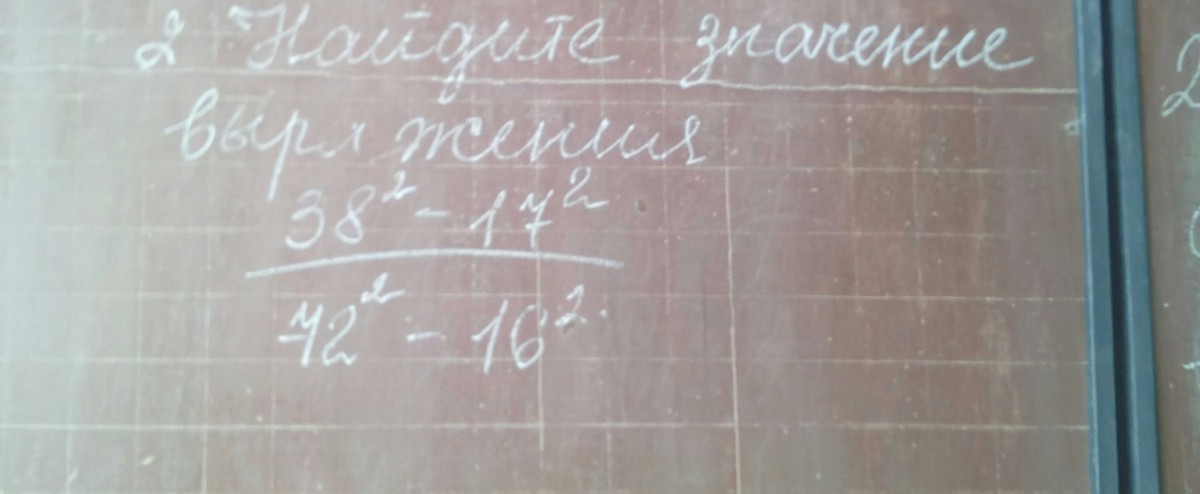 2 Найдите значение
выражения
38² - 17²
72² - 16²
2